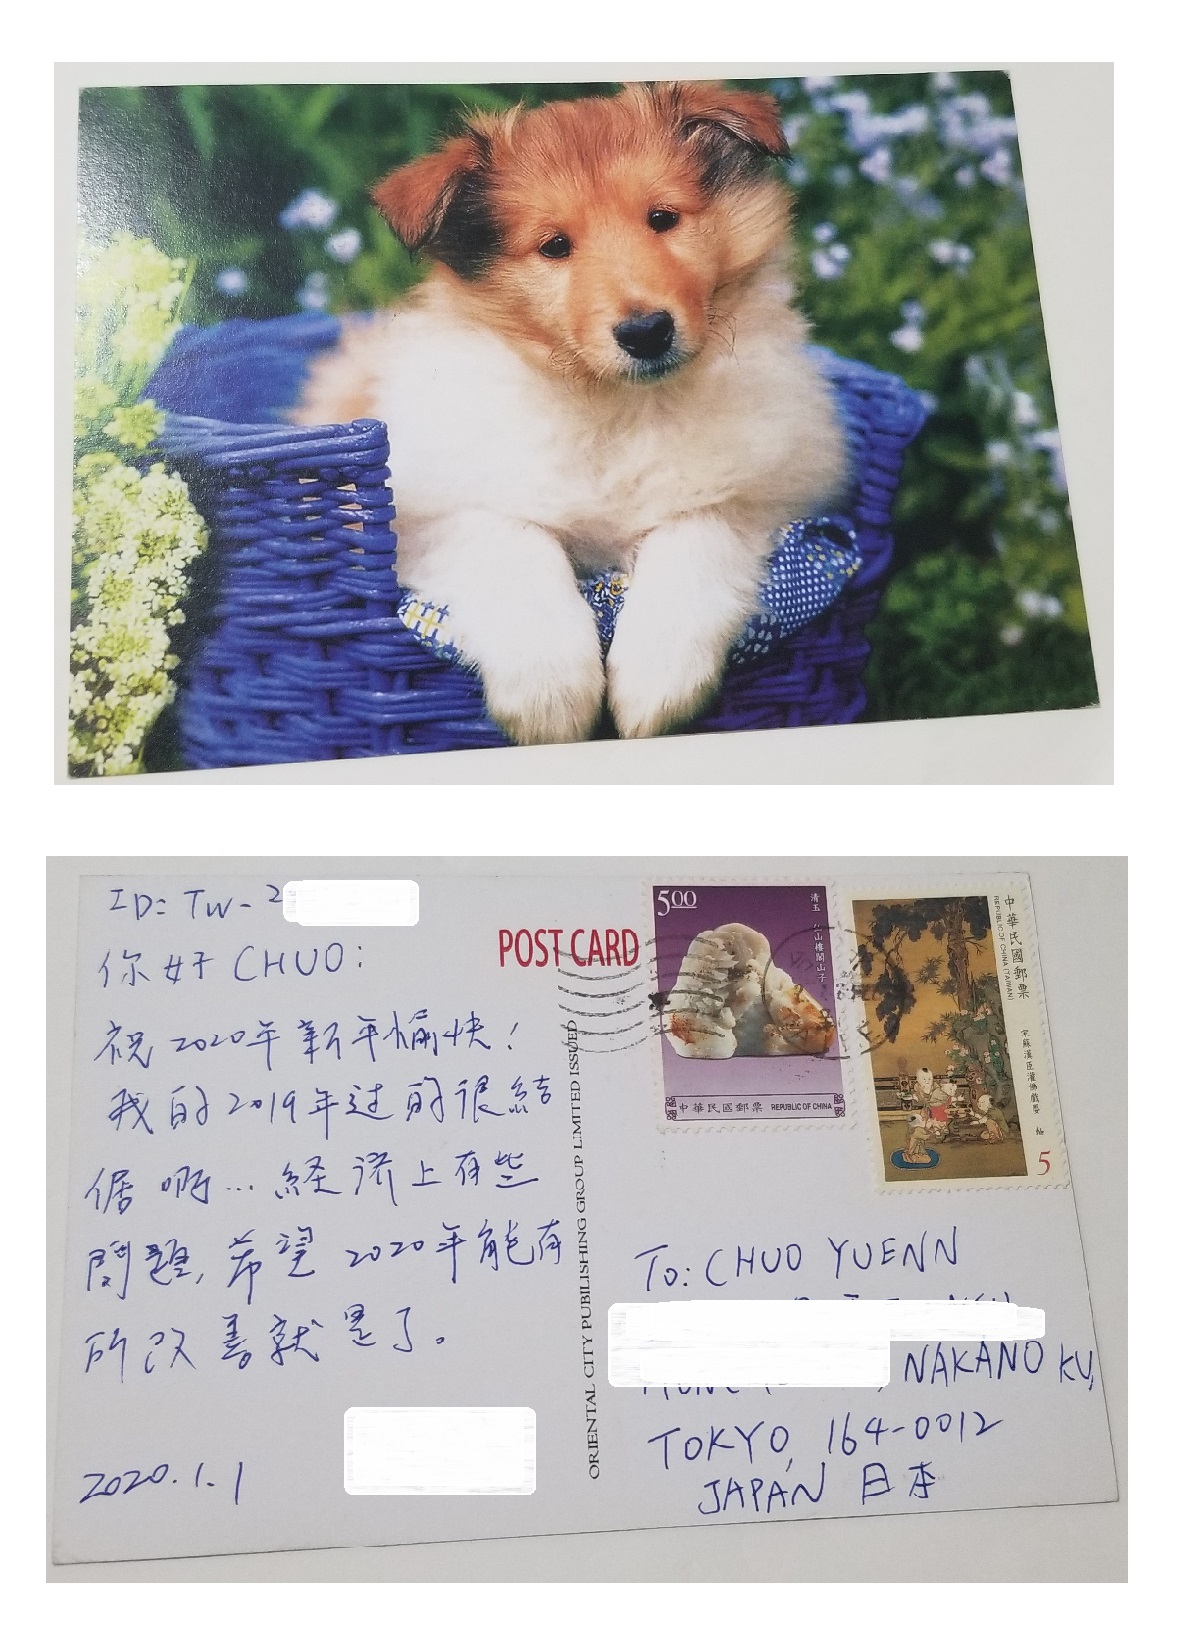 ID: TW-2
你好 CHUO:
祝2020年新年愉快!
我的2019年过的很結
倨啊...経济上有些
問題,希望2020年能有
所改善就是了。
2020.1.1
POST CARD
ORIENTAL CITY PUBILISHING GROUP LIMITED ISSUED
5.00
清玉
山樓閣山子
中華民國郵票 REPUBLIC OF CHINA
中華民國郵票
REPUBLIC OF CHINA (TAIWAN)
宋蘇漢臣灌佛戲嬰
5
To: CHUO YUENN
NAKANO KU,
TOKYO, 164-0012
JAPAN 日本